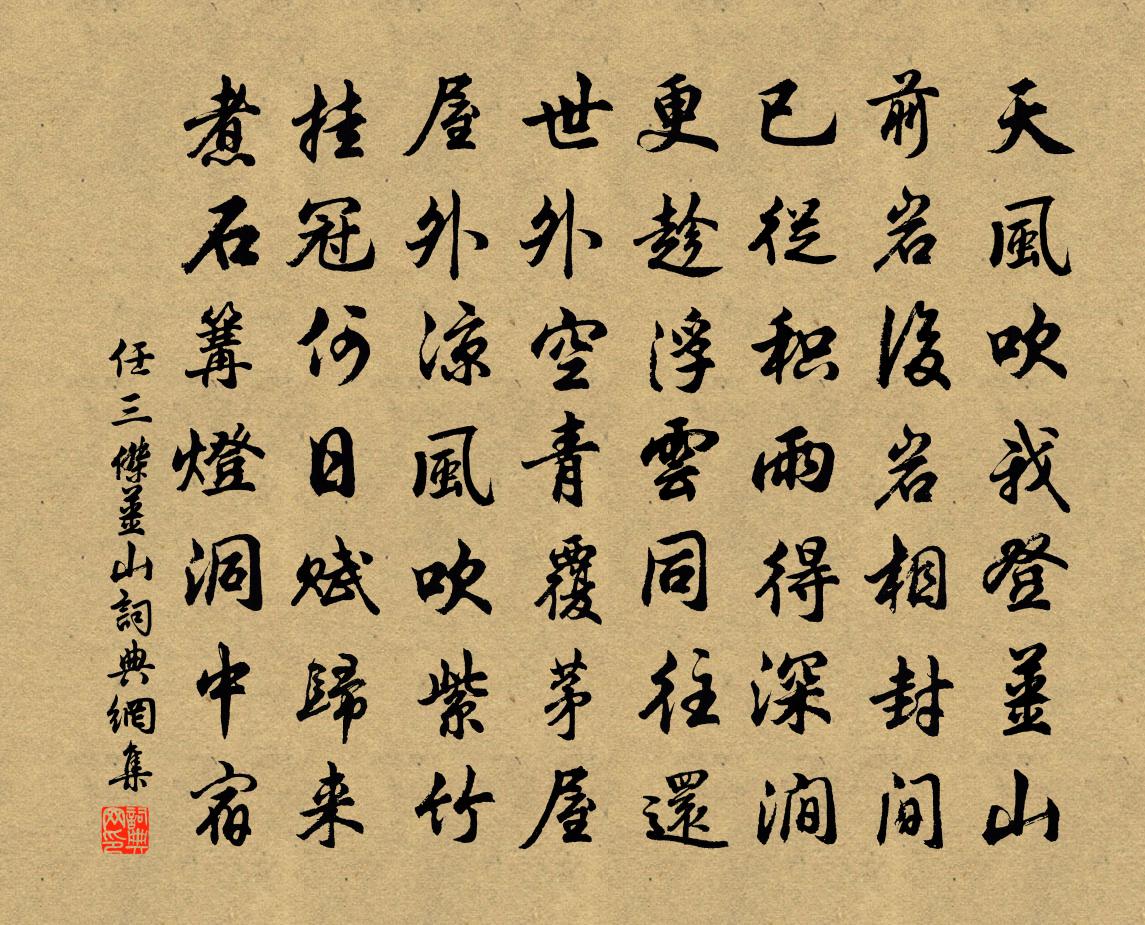 天風吹我登薑山
前岩後岩相封間
已從积雨得深澗
更趁浮雲同往還
世外空青覆茅屋
屋外凉風吹紫竹
挂冠何日賦歸来
煮石篝燈洞中宿
任三傑薑山詞典網集
詞典网印